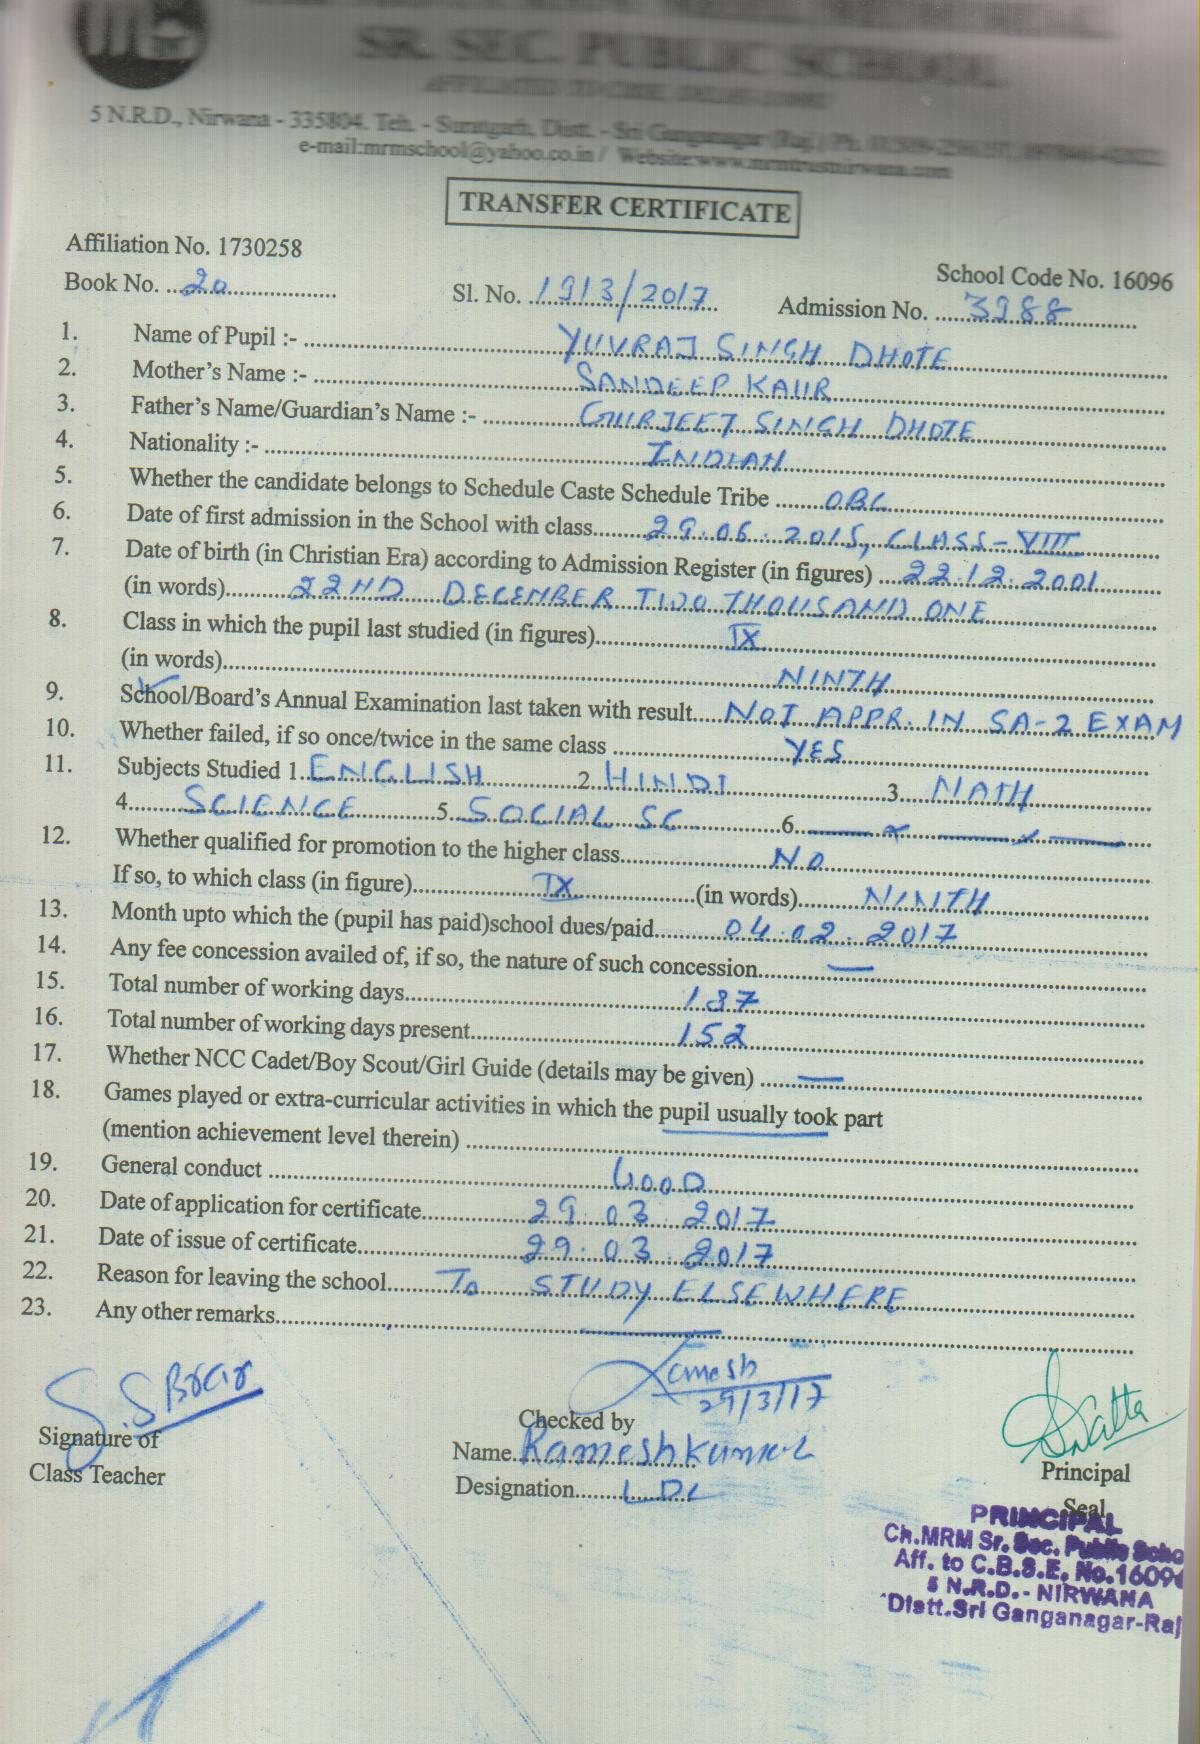 SR. SEC. PUBLIC SCHOOL
5 N.R.D., Nirwana - 335804. Teh. - Suratgarh, Distt. - Sri Ganganagar (Raj.) Ph.
e-mail:mrmschool@yahoo.co.in / Website:www.mrmtrustnirwana.com
TRANSFER CERTIFICATE
Affiliation No. 1730258
School Code No. 16096
Book No. 20 Sl. No. 1913/2017 Admission No. 3988
1. Name of Pupil :- YUVRAJ SINGH DHOTE
2. Mother's Name :- SANDEEP KAUR
3. Father's Name/Guardian's Name :- GURJEET SINGH DHOTE
4. Nationality :- INDIAN
5. Whether the candidate belongs to Schedule Caste Schedule Tribe OBC
6. Date of first admission in the School with class 29.06.2015, CLASS-VIII
7. Date of birth (in Christian Era) according to Admission Register (in figures) 22.12.2001
(in words) 22ND DECEMBER TWO THOUSAND ONE
8. Class in which the pupil last studied (in figures) IX
(in words) NINTH
9. School/Board's Annual Examination last taken with result NOT APPR. IN SA-2 EXAM
10. Whether failed, if so once/twice in the same class YES
11. Subjects Studied 1. ENGLISH 2. HINDI 3. MATH
4. SCIENCE 5. SOCIAL SC 6.
12. Whether qualified for promotion to the higher class NO
If so, to which class (in figure) IX (in words) NINTH
13. Month upto which the (pupil has paid)school dues/paid 04.02.2017
14. Any fee concession availed of, if so, the nature of such concession
15. Total number of working days 187
16. Total number of working days present 152
17. Whether NCC Cadet/Boy Scout/Girl Guide (details may be given)
18. Games played or extra-curricular activities in which the pupil usually took part
(mention achievement level therein)
19. General conduct GOOD
20. Date of application for certificate 29.03.2017
21. Date of issue of certificate 29.03.2017
22. Reason for leaving the school To STUDY ELSEWHERE
23. Any other remarks
S.S Brar
Ramesh
29/3/17
Signature of
Class Teacher
Checked by
Name Ramesh Kumar
Designation LDC
Principal
Seal
PRINCIPAL
Ch.MRM Sr. Sec. Public Scho
Aff. to C.B.S.E. No.16096
5 N.R.D.- NIRWANA
Distt.Sri Ganganagar-Raj